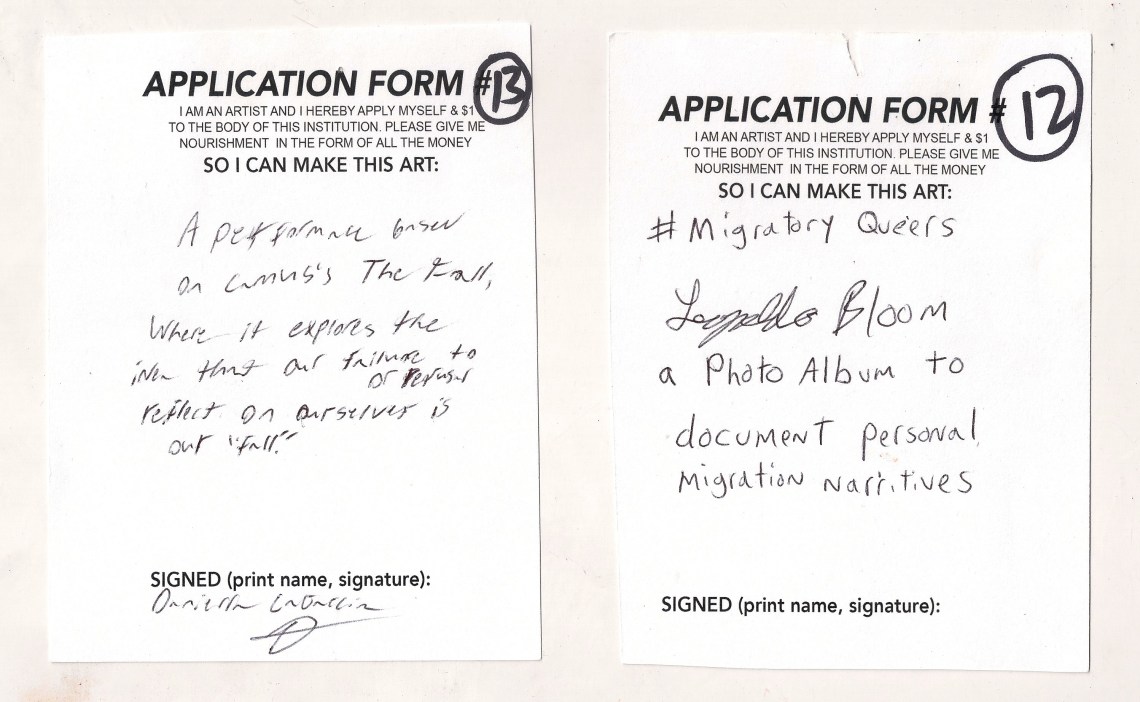 APPLICATION FORM #13
I AM AN ARTIST AND I HEREBY APPLY MYSELF & $1
TO THE BODY OF THIS INSTITUTION. PLEASE GIVE ME
NOURISHMENT IN THE FORM OF ALL THE MONEY
SO I CAN MAKE THIS ART:
A performance based
on Camus's The Fall,
Where it explores the
idea that our failure to
or refusal
reflect on ourselves is
our "fall."
SIGNED (print name, signature):
Daniella
APPLICATION FORM #12
I AM AN ARTIST AND I HEREBY APPLY MYSELF & $1
TO THE BODY OF THIS INSTITUTION. PLEASE GIVE ME
NOURISHMENT IN THE FORM OF ALL THE MONEY
SO I CAN MAKE THIS ART:
# Migratory Queers
Leopoldo Bloom
a Photo Album to
document personal
Migration Narritives
SIGNED (print name, signature):